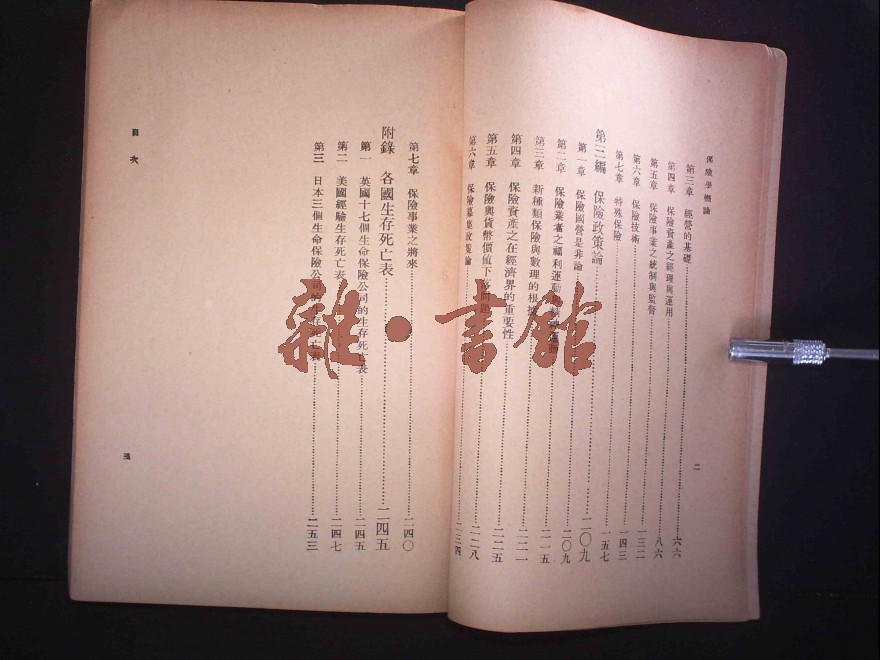 保險學概論
二
第三章 經營的基礎 六六
第四章 保險資產之經理與運用 八六
第五章 保險事業之統制與監督 一三二
第六章 保險技術 一四三
第七章 特殊保險 一五七
第三編 保險政策論 二〇九
第一章 保險國營是非論 二〇九
第二章 保險業者之福利運動 二一五
第三章 新種類保險與數理的根據 二二一
第四章 保險資產之在經濟界的重要性 二二五
第五章 保險與貨幣價值下落問題 二二八
第六章 保險募集政策論 二三四
第七章 保險事業之將來 二四〇
附錄 各國生存死亡表 二四五
第一 英國十七個生命保險公司的生存死亡表 二四五
第二 美國經驗生存死亡表 二四七
第三 日本三個生命保險公司的生存死亡表 二五三
目次
三
雜·書館